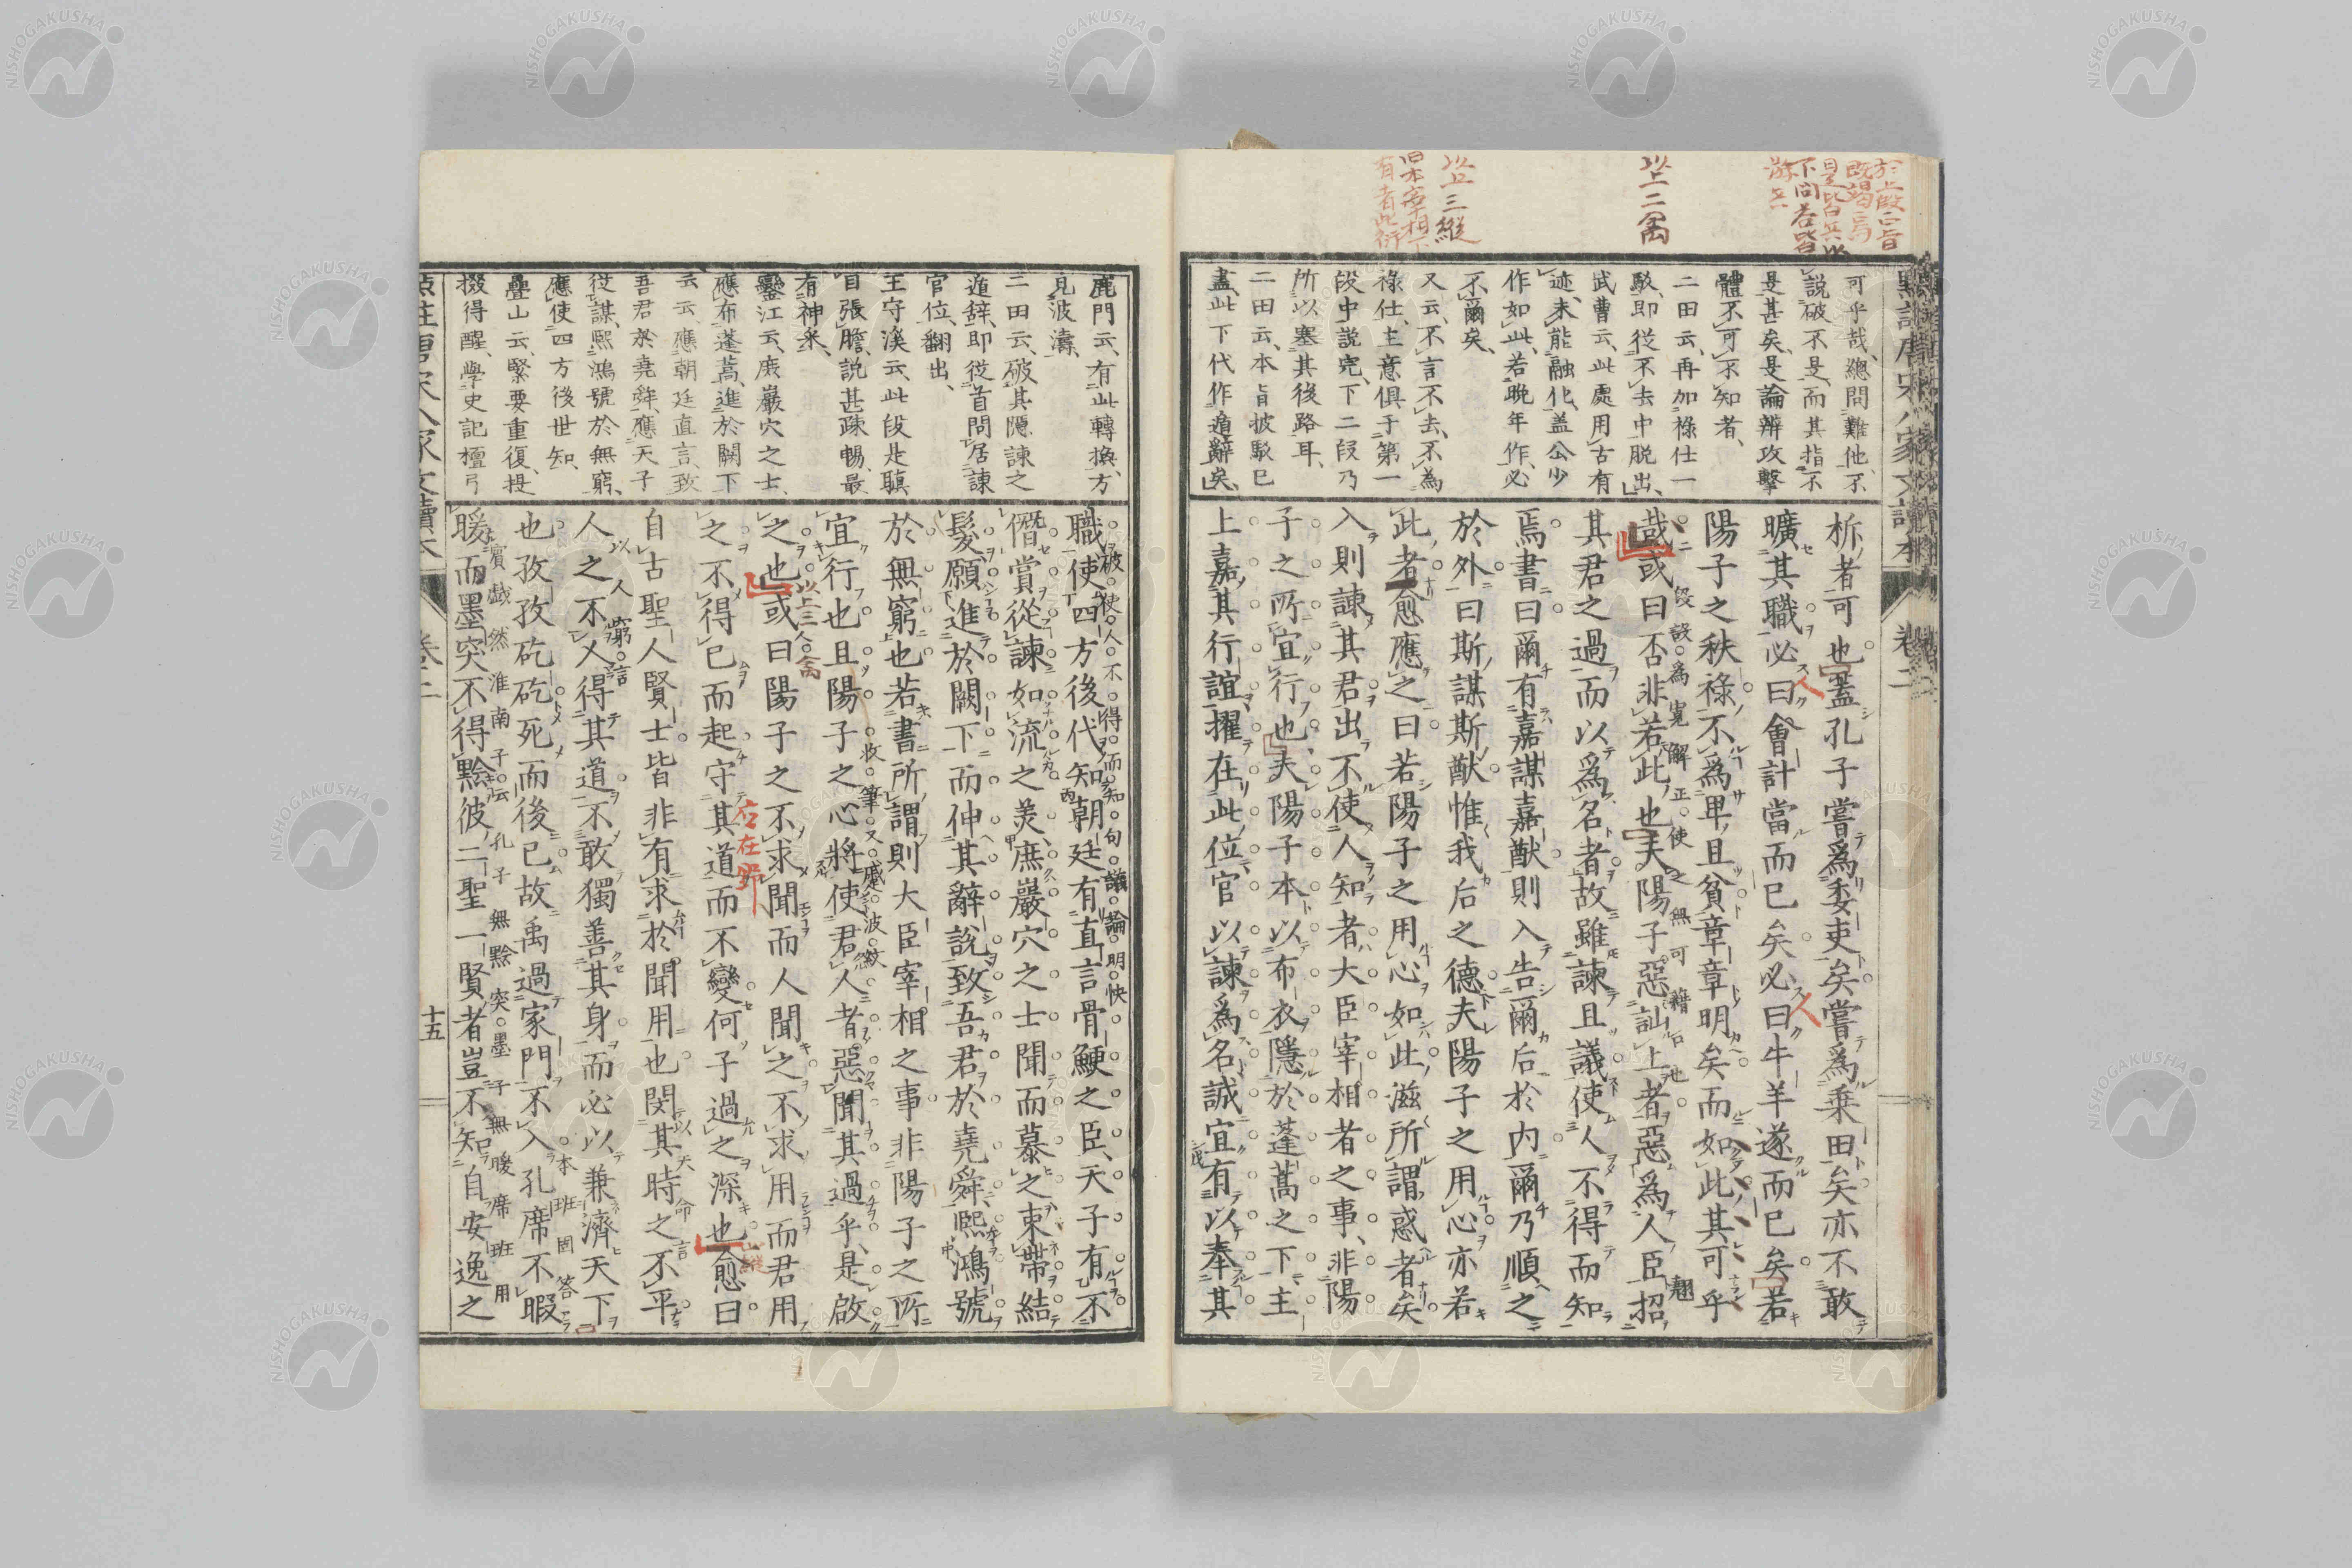 於上段正旨
既竭焉
是皆共以
下問答皆
游兵
以上二禽
以上三縱
旧本宰相下
有者此衍
可乎哉、總問難他、不
說破不是、而其指不
是甚矣、是論辨攻擊
體、不可不知者、
二田云、再加祿仕一
駁、即從不去中脫出、
武曹云、此處用古有
迹、未能融化、蓋公少
作如此、若晚年作、必
不爾矣、
又云、不言不去、不為
祿仕、主意俱于第一
段中說完、下二段乃
所以塞其後路耳、
二田云、本旨披駁已
盡、此下代作遁辭矣、
卷二
柝者可也蓋孔子嘗爲委吏矣嘗爲乘田矣亦不敢
曠其職必曰會計當而已矣必曰牛羊遂而已矣若
陽子之秩祿不爲卑且貧章章明矣而如此其可乎
哉或曰否非若此也夫陽子惡訕上者惡爲人臣招
其君之過而以爲名者故雖諫且議使人不得而知
焉書曰爾有嘉謀嘉猷則入告爾后於内爾乃順之
於外曰斯謀斯猷惟我后之德夫陽子之用心亦若
此者愈應之曰若陽子之用心如此滋所謂惑者矣
入則諫其君出不使人知者大臣宰相者之事非陽
子之所宜行也夫陽子本以布衣隱於蓬蒿之下主
上嘉其行誼擢在此位官以諫爲名誠宜有以奉其
鹿門云、有此轉換、方
見波濤、
二田云、破其隱諫之
遁辭、即從首問居諫
官位翻出、
王守溪云、此段是瞋
目張膽、說甚疎暢、最
有神采、
鑒江云、庶巖穴之士、
應布蓬蒿、進於闕下
云云、應朝廷直言、致
吾君於堯舜、應天子
從諫、熙鴻號於無窮、
應使四方後世知、
疊山云、緊要重復、提
掇得醒、學史記檀弓
職使四方後代知朝廷有直言骨鯁之臣、天子有不
僭賞從諫如流之美、庶巖穴之士聞而慕之束帶結
髮願進於闕下而伸其辭說致吾君於堯舜、熙鴻號
於無窮也若書所謂則大臣宰相之事非陽子之所
宜行也且陽子之心將使君人者惡聞其過乎、是啟
之也或曰陽子之不求聞而人聞之不求用而君用
之不得已而起守其道而不變何子過之深也愈曰
自古聖人賢士皆非有求於聞用也閔其時之不平
人之不乂得其道不敢獨善其身而必以兼濟天下
也孜孜矻矻死而後已故禹過家門不入孔席不暇
暖而墨突不得黔彼二聖一賢者豈不知自安逸之
卷二
十五